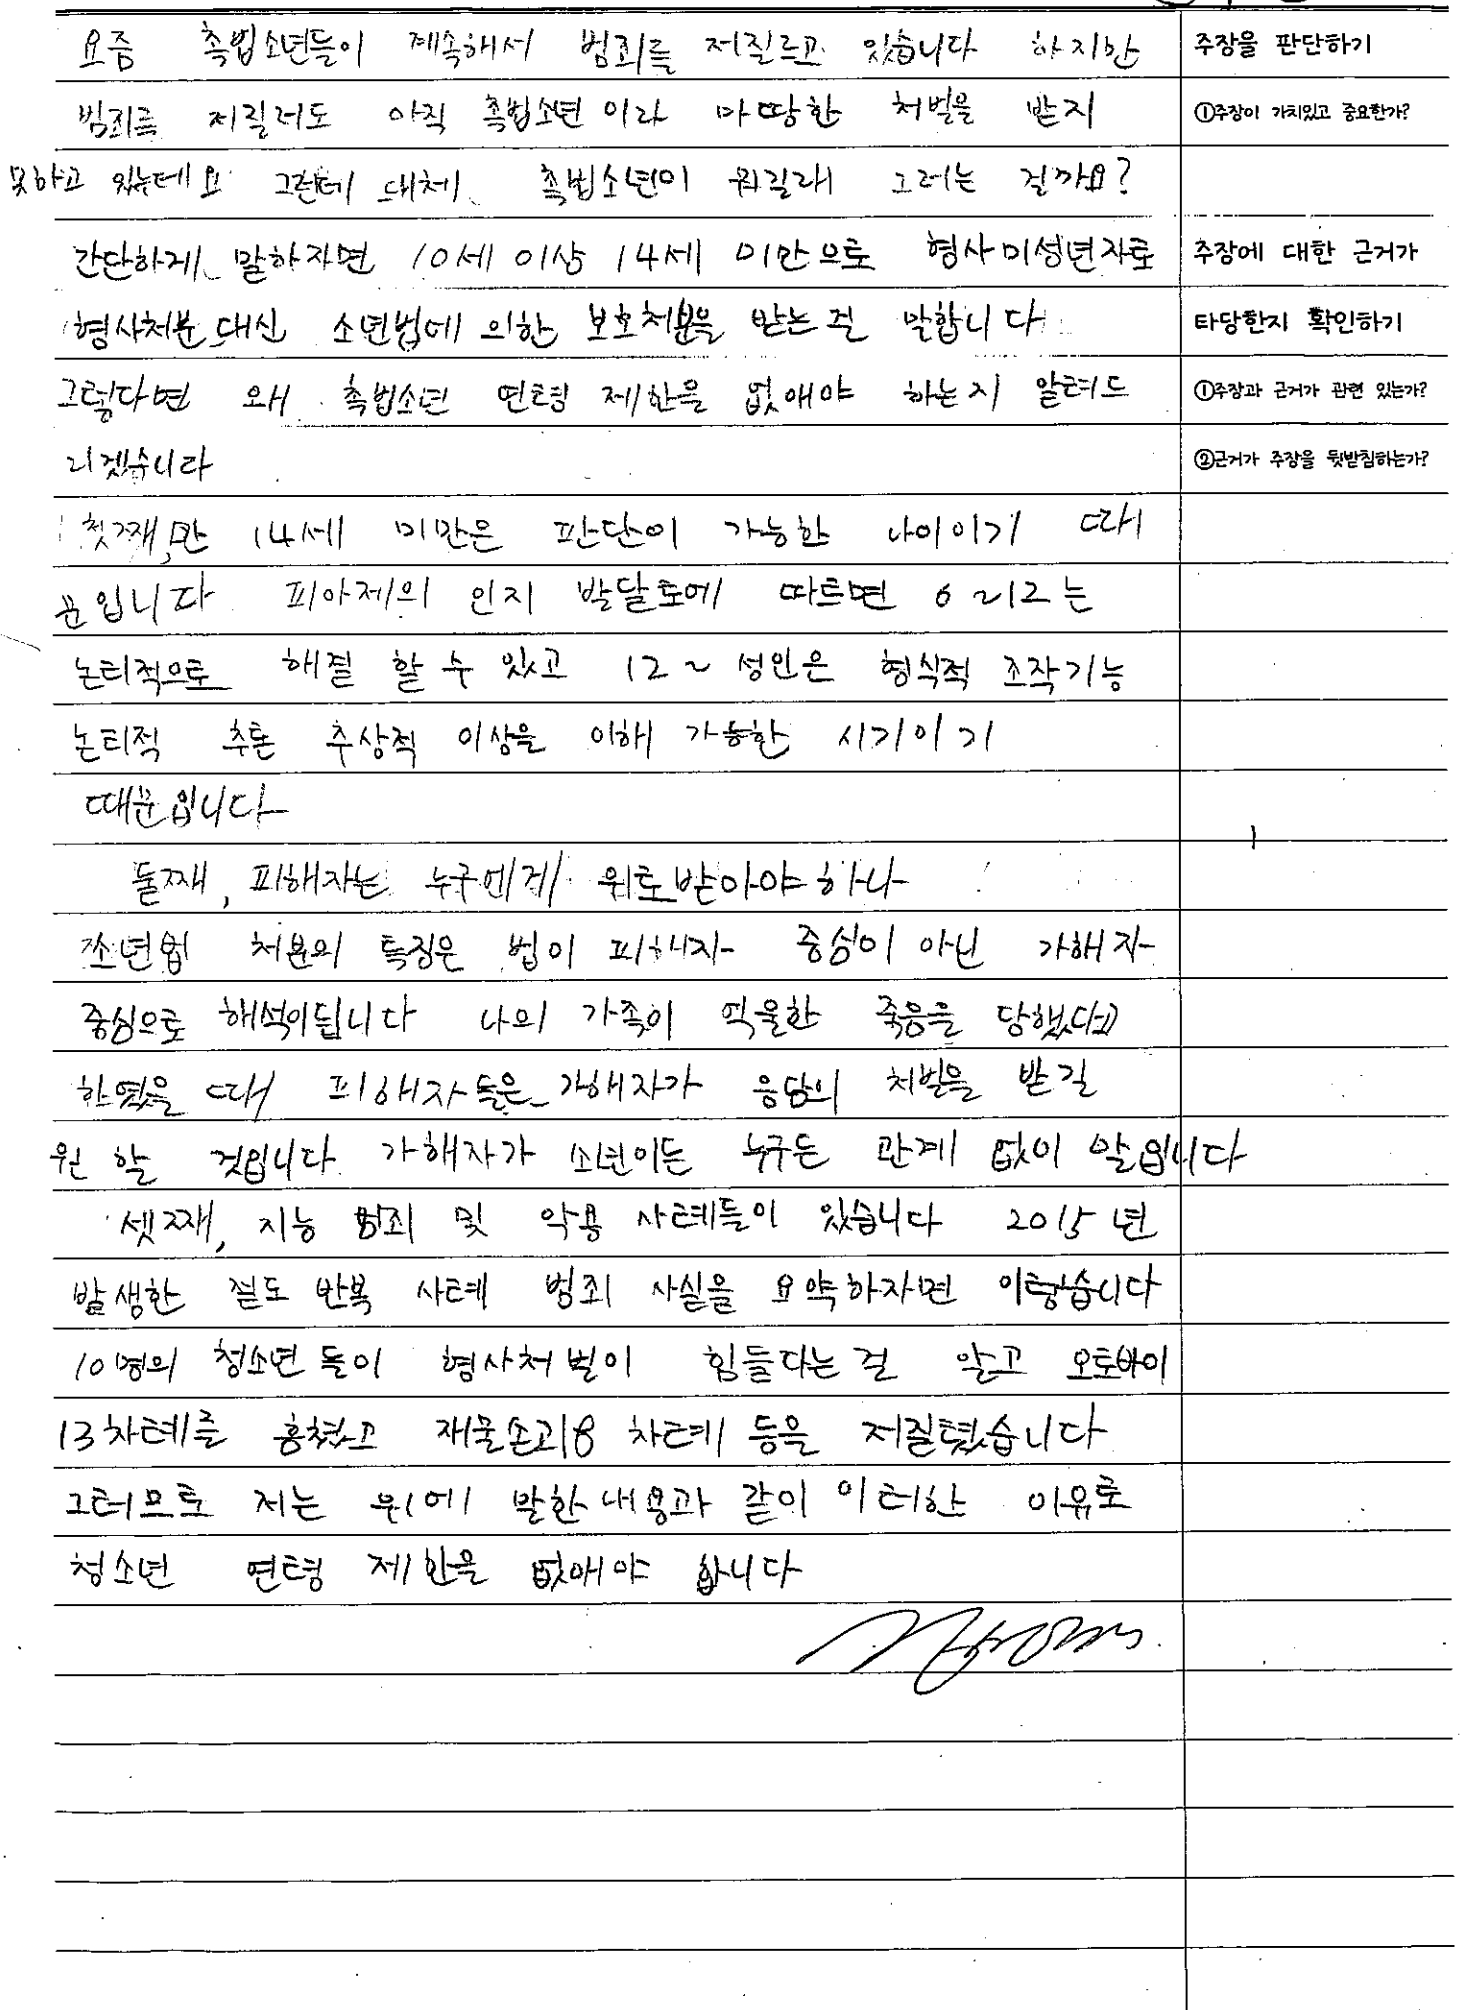 요즘 촉법소년들이 계속해서 범죄를 저지르고 있습니다 하지만
범죄를 저질러도 아직 촉법소년 이라 마땅한 처벌을 받지
못하고 있는데요 그런데 대체 촉법소년이 뭐길래 그러는 걸까요?
간단하게 말하자면 10세 이상 14세 미만으로 형사미성년자로
형사처분 대신 소년법에 의한 보호처분을 받는걸 말합니다
그렇다면 왜 촉법소년 연령 제한을 없애야 하는지 알려드
리겠습니다
첫째, 만 14세 미만은 판단이 가능한 나이이기 때
문입니다 피아제의 인지 발달로에 따르면 6 는
논리적으로 해결 할 수 있고 12 ~ 성인은 형식적 조작기능
논리적 추론 추상적 이상을 이해 가능한 시기이기
때문입니다
둘째, 피해자는 누구에게 위로받아야하나
소년법 처분의 특징은 법이 피해자 중심이 아닌 가해자
중심으로 해석이됩니다 나의 가족이 억울한 죽음을 당했다고
하였을 때 피해자들은 가해자가 응당의 처벌을 받길
원 할 것입니다 가해자가 소년이든 누구든 관계 없이 말입니다
셋째, 지능 범죄 및 악용 사례들이 있습니다 2015년
발생한 절도 반복 사례 범죄 사실을 요약하자면 이렇습니다
10명의 청소년 들이 형사처벌이 힘들다는걸 알고 오토바이
13차례를 훔쳤고 재물손괴8 차례 등을 저질렀습니다
그러므로 저는 위에 말한내용과 같이 이러한 이유로
청소년 연령 제한을 없애야 합니다
주장을 판단하기
①주장이 가치있고 중요한가?
주장에 대한 근거가
타당한지 확인하기
①주장과 근거가 관련 있는가?
②근거가 주장을 뒷받침하는가?